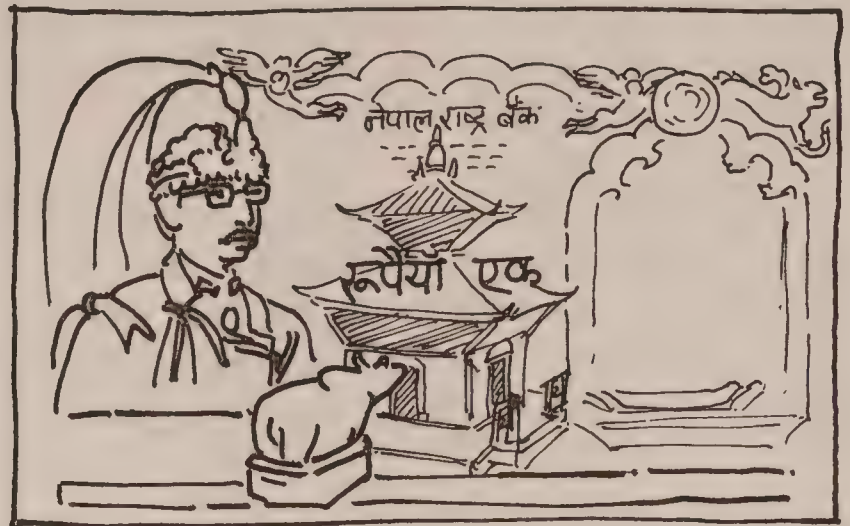 नेपाल राष्ट्र बैंक
रूपैयाँ एक